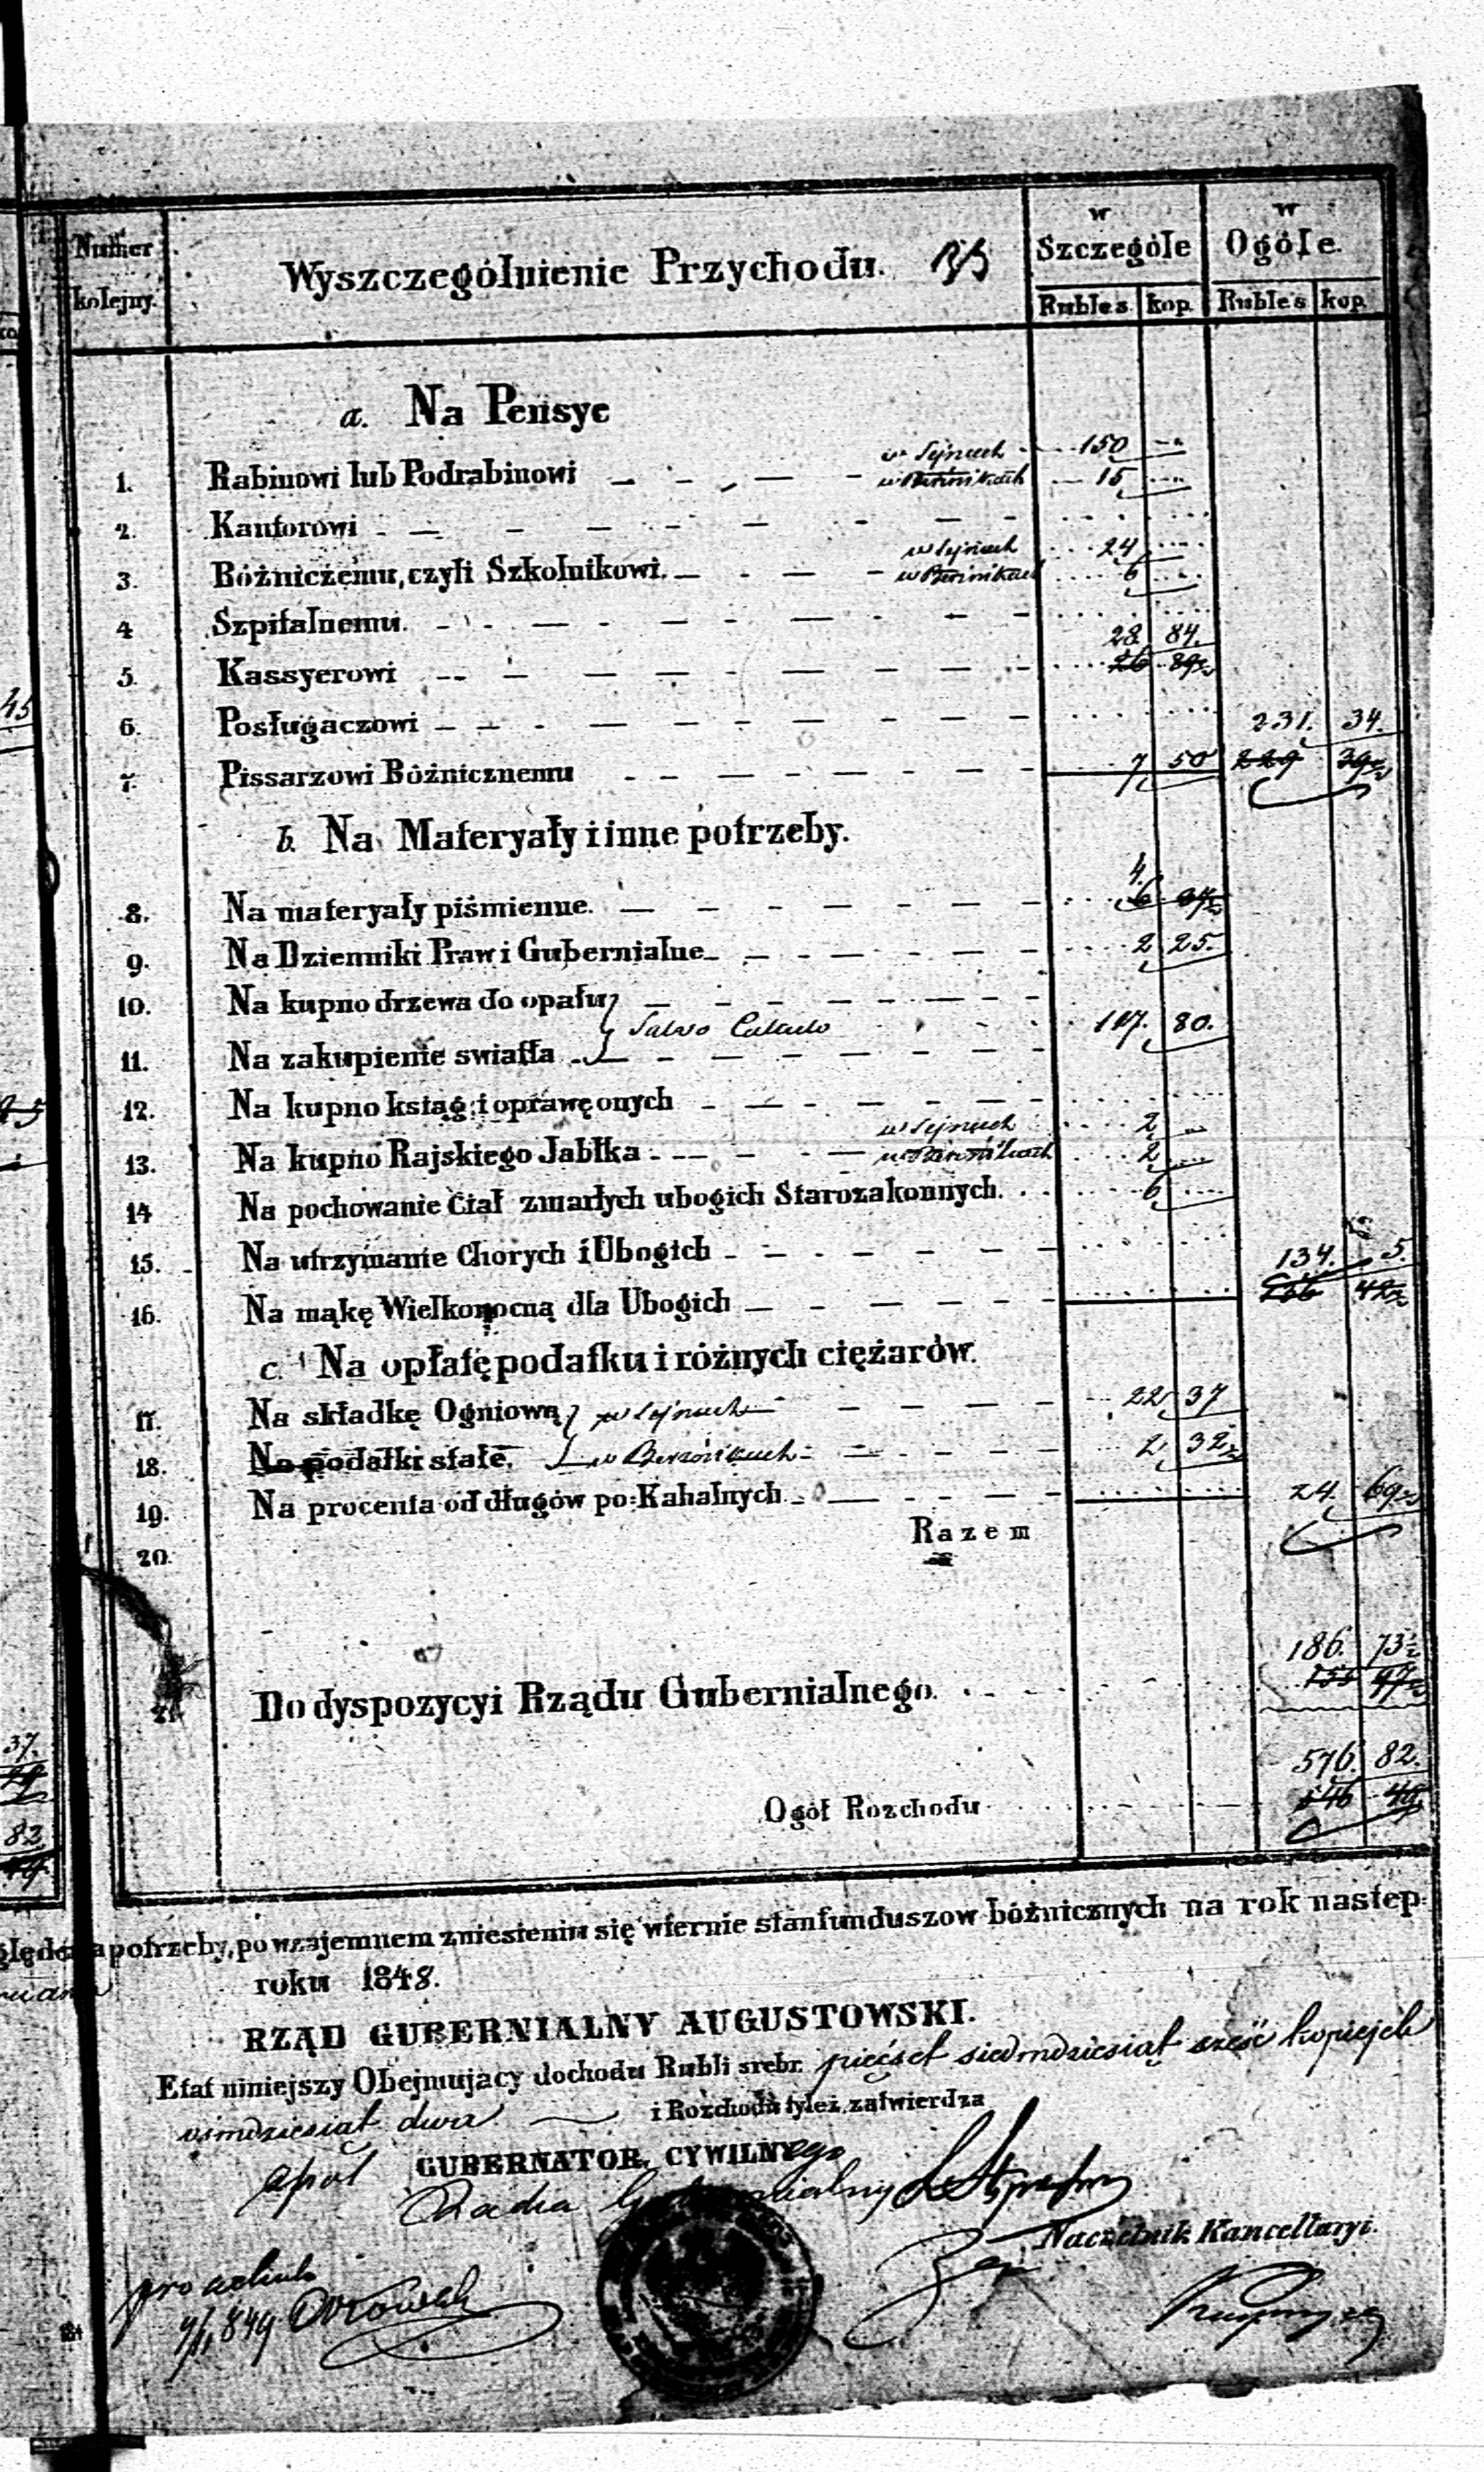 Numer kolejny.
Wyszczególnienie Przychodu.
w Szczególe
w Ogóle.
Rubles kop. Rubles kop.
a. Na Pensye
w Sejnach 150 —
1. Rabinowi lub Podrabinowi — w Berżnikach 15
2. Kantorowi
w Sejnach 24
3. Bóżniczemu, czyli Szkolnikowi. — w Berżnikach 6
4 Szpitalnemu.
28 84.
5. Kassyerowi 26
6. Posługaczowi 231. 34.
7. Pissarzowi Bóżnicznemu 7 50 229 39½
b. Na Materyały i inne potrzeby.
4.
8. Na materyały piśmienne. 6
9. Na Dzienniki Praw i Gubernialne 2 25.
10. Na kupno drzewa do opału
Salvo Calculo 117. 80.
11. Na zakupienie swiatła
12. Na kupno ksiąg i oprawę onych
w Sejnach 2 —
13. Na kupno Rajskiego Jabłka w Berżnikach 2
14 Na pochowanie Ciał zmarłych ubogich Starozakonnych. 6
15. Na utrzymanie Chorych i Ubogich 134. 5.
16. Na mąkę Wielkonocną dla Ubogich 42½
c. Na opłatę podatku i różnych ciężarów.
17. Na składkę Ogniową w Sejnach 22 37
18. Na podatki stałe. w Berżnikach 2 32½
19. Na procenta od długów po-Kahalnych 24. 69½
20. Razem
186. 73½
21. Do dyspozycyi Rządu Gubernialnego.
576. 82.
Ogół Rozchodu 546 49
potrzeby, po wzajemnem zniesieniu się wiernie stan funduszow bóżnicznych na rok nastep:
roku 1848.
RZĄD GUBERNIALNY AUGUSTOWSKI.
Etat niniejszy Obejmujacy dochodu Rubli srebr. pięćset siedmdziesiąt sześć kopiejek
ośmdziesiąt dwa — i Rozchodu tyleż zatwierdza
GUBERNATOR CYWILNYego
Radca Gubernialny
Naczelnik Kancellaryi.